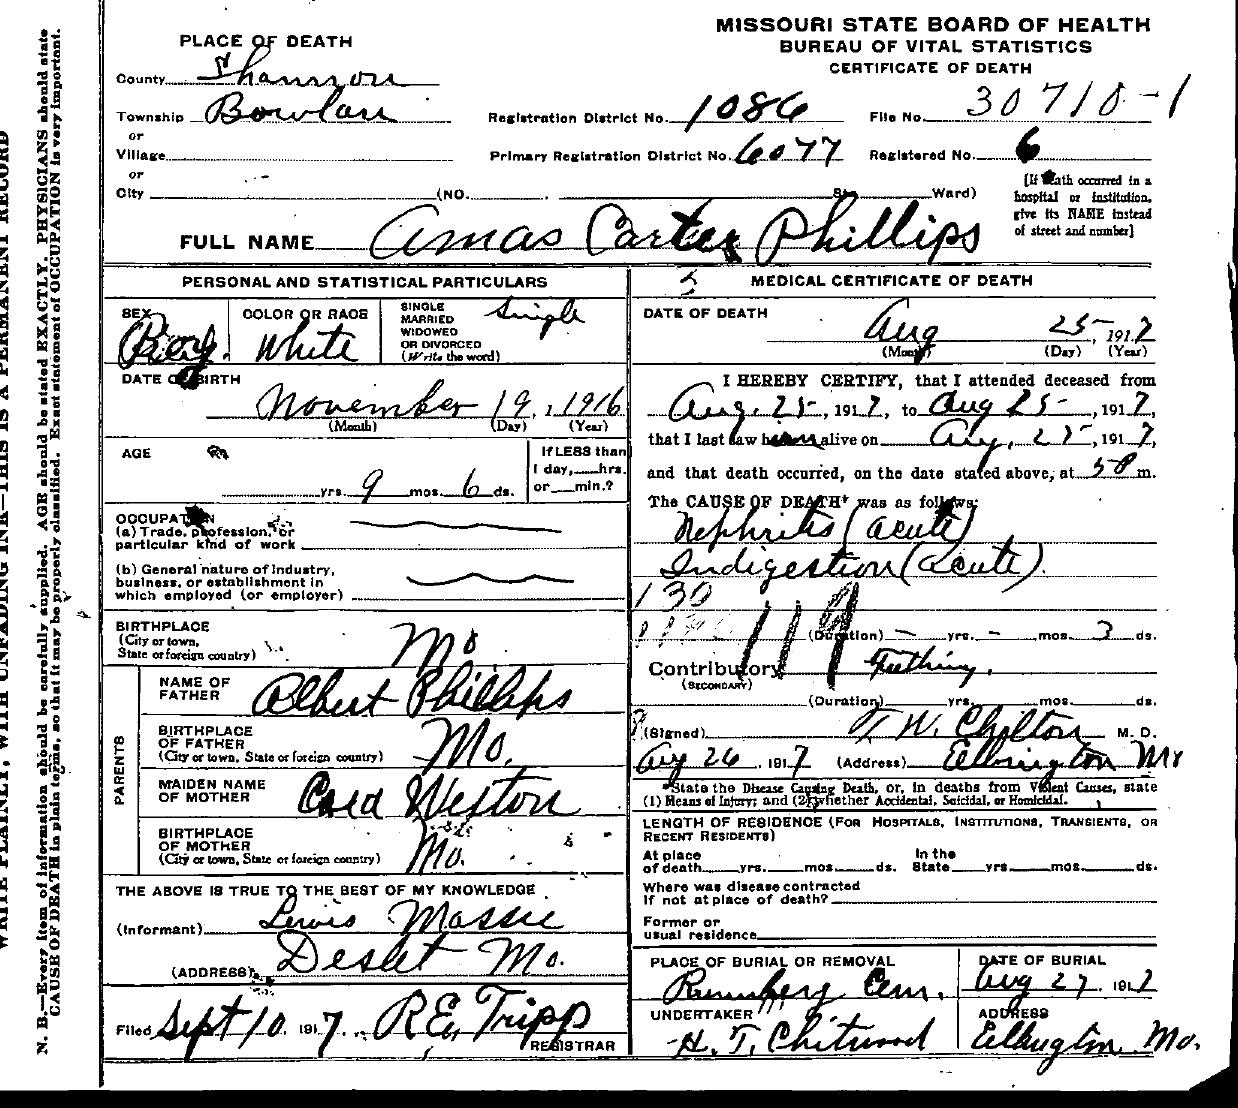 MISSOURI STATE BOARD OF HEALTH
BUREAU OF VITAL STATISTICS
CERTIFICATE OF DEATH
PLACE OF DEATH
County Shannon
Township Bowlan
or
Village
or
City (NO. St. Ward)
Registration District No. 1086
File No. 30710-1
Primary Registration District No. 6077
Registered No. 6
[If death occurred in a
hospital or institution,
give its NAME instead
of street and number]
FULL NAME Amas Carter Phillips
PERSONAL AND STATISTICAL PARTICULARS
SEX Boy.
COLOR OR RACE White
SINGLE
MARRIED
WIDOWED
OR DIVORCED
(Write the word) Single
DATE OF BIRTH
November 19, 1916
(Month) (Day) (Year)
AGE
yrs. 9 mos. 6 ds.
If LESS than
1 day, hrs.
or min.?
OCCUPATION
(a) Trade, profession, or
particular kind of work
(b) General nature of Industry,
business, or establishment in
which employed (or employer)
BIRTHPLACE
(City or town,
State or foreign country) Mo
PARENTS
NAME OF
FATHER Albert Phillips
BIRTHPLACE
OF FATHER
(City or town, State or foreign country) Mo.
MAIDEN NAME
OF MOTHER Cord Weston
BIRTHPLACE
OF MOTHER
(City or town, State or foreign country) Mo.
THE ABOVE IS TRUE TO THE BEST OF MY KNOWLEDGE
(Informant) Lewis Massie
(ADDRESS) Deslet Mo.
Filed Sept 10, 1917. R E Tripp
REGISTRAR
MEDICAL CERTIFICATE OF DEATH
DATE OF DEATH
Aug 25, 1917
(Month) (Day) (Year)
I HEREBY CERTIFY, that I attended deceased from
Aug. 25, 1917, to Aug 25, 1917,
that I last saw him alive on Aug, 25, 1917,
and that death occurred, on the date stated above, at 5 P m.
The CAUSE OF DEATH* was as follows:
Nephritis (acute)
Indigestion (acute).
130
119
(Duration) – yrs. – mos. 3 ds.
Contributory Teething.
(SECONDARY)
(Duration) yrs. mos. ds.
(Signed) T. W. Chilton M. D.
Aug 26, 1917 (Address) Ellsington Mo
*State the Disease Causing Death, or, in deaths from Violent Causes, state
(1) Means of Injury; and (2) whether Accidental, Suicidal, or Homicidal.
LENGTH OF RESIDENCE (FOR HOSPITALS, INSTITUTIONS, TRANSIENTS, OR
RECENT RESIDENTS)
At place
of death yrs. mos. ds.
In the
State yrs. mos. ds.
Where was disease contracted
If not at place of death?
Former or
usual residence
PLACE OF BURIAL OR REMOVAL
Cem.
DATE OF BURIAL
Aug 27, 1917
UNDERTAKER
H. T. Chitwood
ADDRESS
Ellington Mo.
N. B.—Every item of information should be carefully supplied. AGE should be stated EXACTLY. PHYSICIANS should state
CAUSE OF DEATH in plain terms, so that it may be properly classified. Exact statement of OCCUPATION is very important.
WRITE PLAINLY, WITH UNFADING INK—THIS IS A PERMANENT RECORD